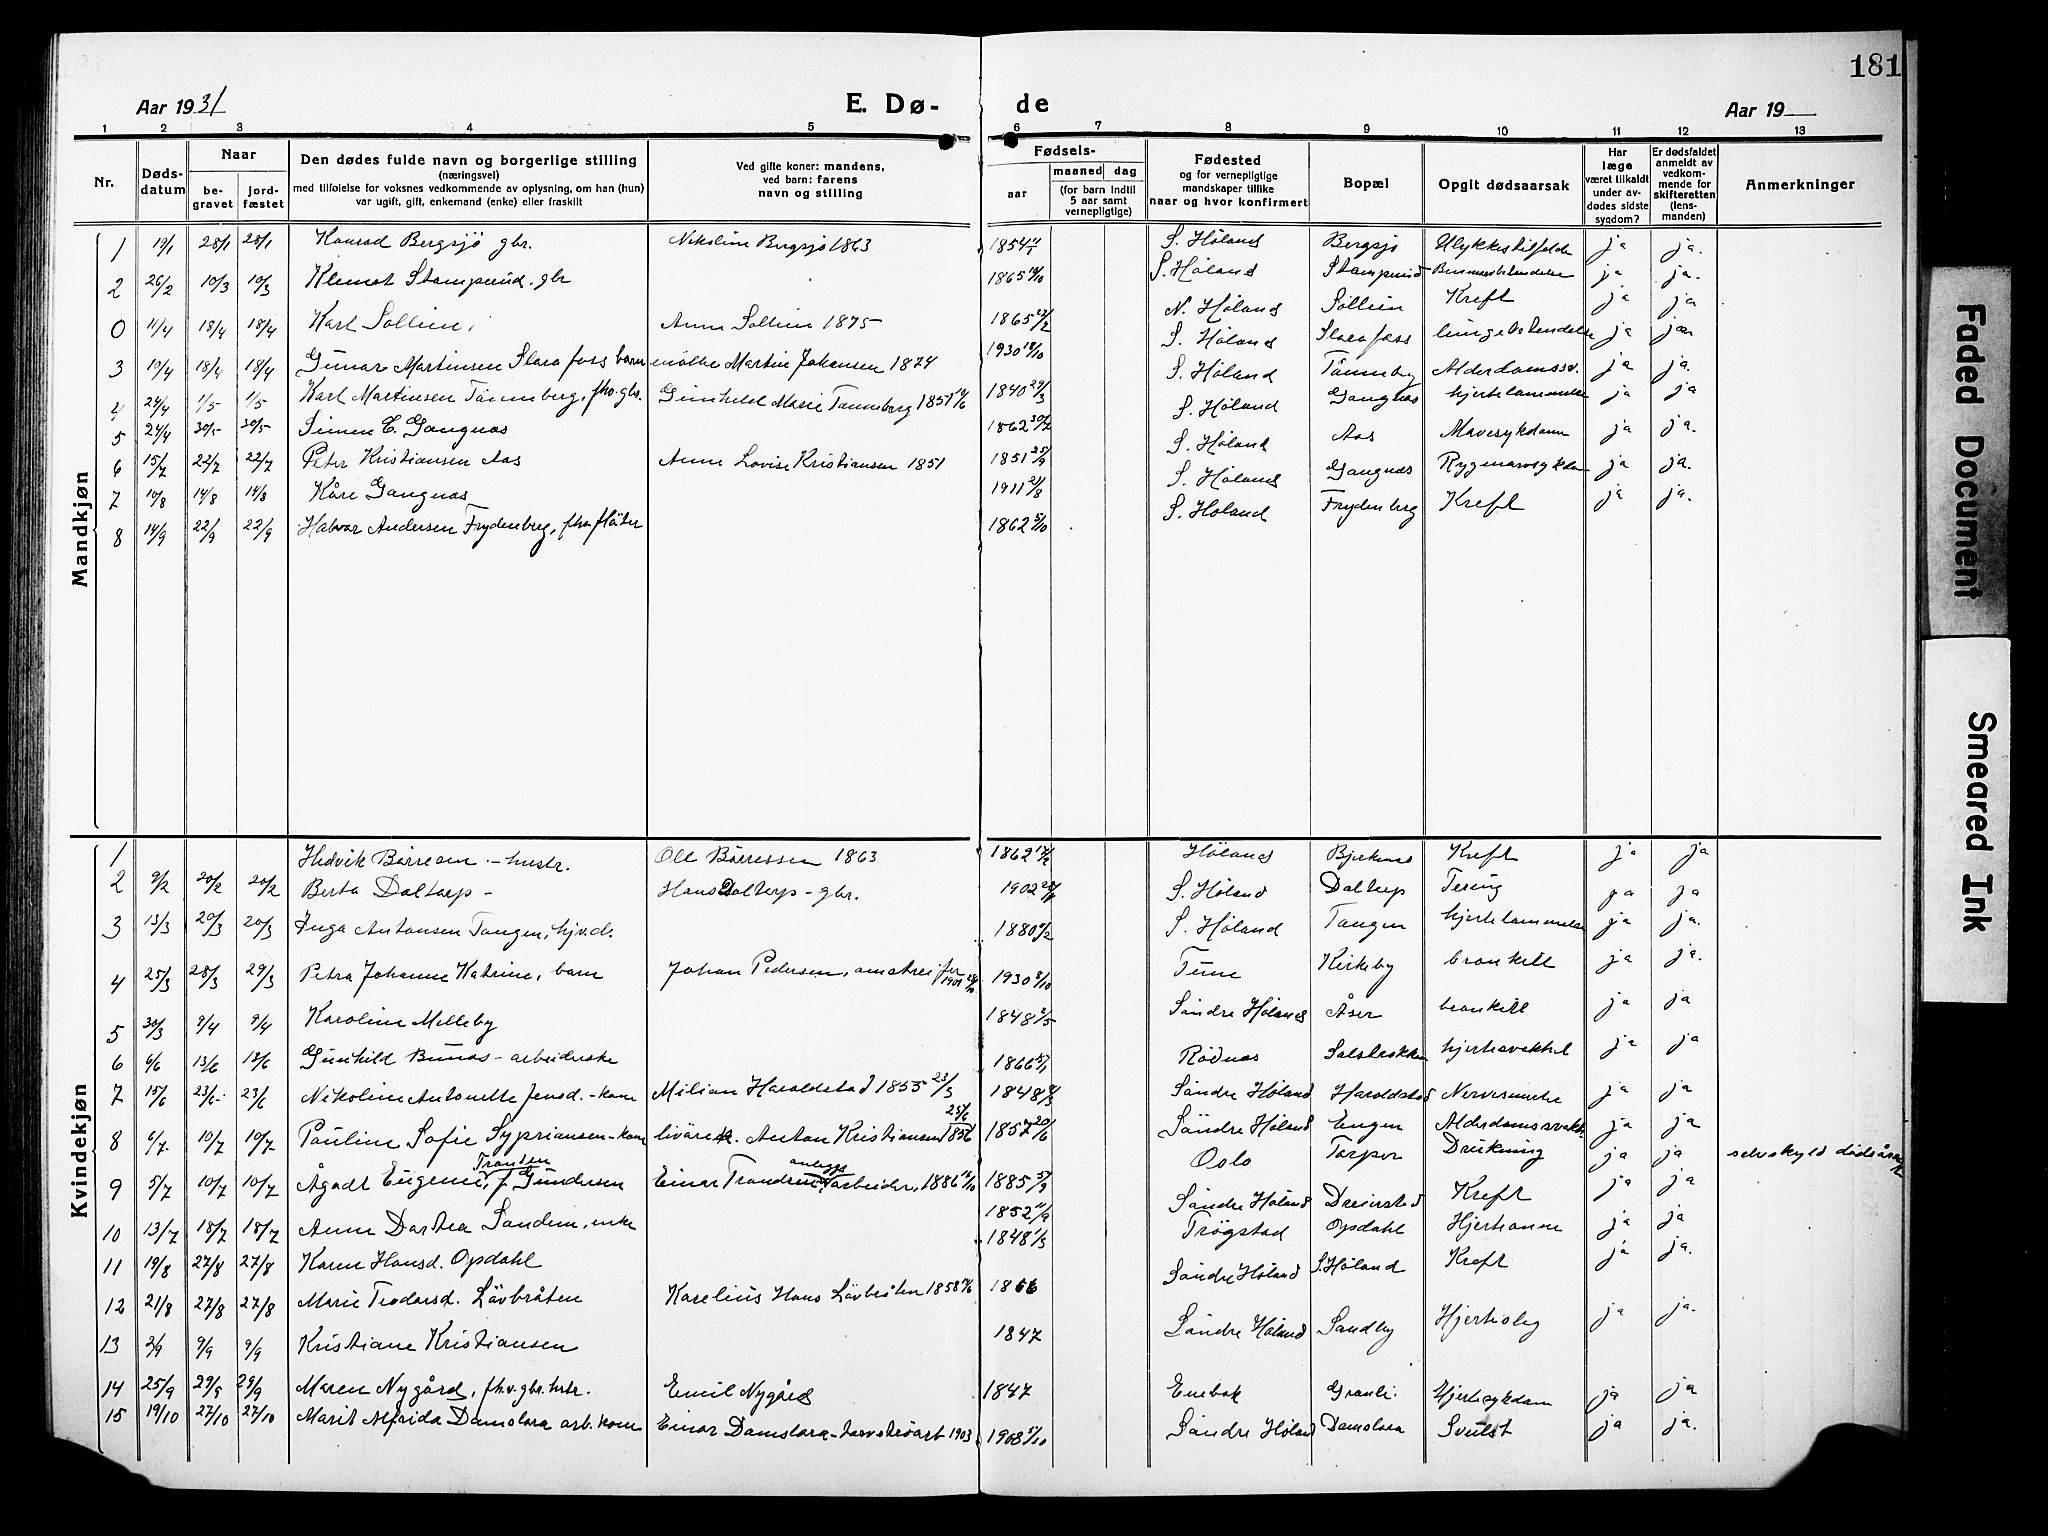 181
Aar 1931 E. Dø- de Aar 19
1 2 3 4 5 6 7 8 9 10 11 12 13
Nr. Døds-datum Naar be-gravet jord-fæstet Den dødes fulde navn og borgerlige stilling (næringsvei) med tilføielse for voksnes vedkommende av oplysning, om han (hun) var ugift, gift, enkemand (enke) eller fraskilt Ved gifte koner: mandens, ved barn: farens navn og stilling Fødsels- aar maaned dag (for barn indtil 5 aar samt vernepligtige) Fødested og for vernepligtige mandskaper tillike naar og hvor konfirmert Bopæl Opgit dødsaarsak Har læge været tilkaldt under av-dødes sidste sygdom? Er dødsfaldet anmeldt av vedkom-mende for skifteretten (lens-manden) Anmerkninger
Mandkjøn
1 19/1 28/1 28/1 Konrad Bergsjö gbr. Nikoline Bergsjö 1863 1854 S. Høland Bergsjö Ulykkestilfelde ja ja.
2 26/2 10/3 10/3 Klemet Stamperud. gbr 1865 S. Høland Stamperud ja ja.
0 11/4 18/4 18/4 Karl Sollien, Anne Sollien 1875 1865 N. Høland Sollien Kreft ja ja
3 10/4 18/4 18/4 Gunar Martinsen Slorafoss barn Martin Johansen 1874 1930 18/10 S. Høland Slorafoss lungebetendelse ja ja
4 24/4 1/5 1/5 Karl Martinsen Tånneberg, fhv. gbr. Gunhild Marie Tanneberg 1851 1840 29/3 S. Høland Tånneby Alderdomssv. ja ja.
5 24/4 30/5 30/5 Simen E. Gangnæs 1862 S. Høland Gangnæs hjertelammelse ja ja
6 15/7 22/7 22/7 Peter Kristiansen Aas Anne Lovise Kristiansen 1851 1851 25/9 S. Høland Aas Mavesykdom ja ja.
7 10/8 14/8 14/8 Kåre Gangnæs 1911 21/3 S. Høland Gangnæs Rygmarvsykdom ja ja.
8 14/9 22/9 22/9 Halvor Andersen Frydenberg, fhv. fløter 1862 5/10 S. Høland Frydenberg Kreft ja ja.
Kvindekjøn
1 Hedvik Börresen - hustr. Ole Börressen 1863 1862 17/2 Høland Bjerkenes Kreft ja ja
2 9/2 20/2 20/2 Berta Daltorp - Hans Daltorp - gbr. 1902 S. Høland Daltorp Tering ja ja
3 13/3 20/3 20/3 Inga Antonsen Tangen, hjv.d. 1880 S. Høland Tangen hjertelammelse ja ja.
4 25/3 28/3 29/3 Petra Johanne Katrine, barn Johan Pedersen, 1901 1930 8/10 Tune Kirkeby bronkitt ja ja.
5 30/3 9/4 9/4 Karoline Melleby 1848 Söndre Høland Åser bronkitt ja ja
6 6/6 13/6 13/6 Gunhild Bunæs - arbeiderske 1866 Rødnæs hjertesvakhet ja ja
7 15/6 23/6 23/6 Nikoline Antonette Jensd. - kone Milian Haroldstad 1855 23/3 1848 Söndre Høland Haroldstad ja ja
8 6/7 10/7 10/7 Pauline Sofie Sypriansen - kone Anton Kristiansen 1856 25/6 1857 20/6 Söndre Høland Engen Alderdomssvakh. ja ja
9 5/7 10/7 10/7 Ågadt Eugenie Tronsen f. Gundersen Einar Trondsen anleggs arbeider, 1886 1885 Oslo Torper Drukning ja ja selvskyld dødsårsak
10 13/7 18/7 18/7 Anne Dortea Sandem, enke 1852 11/9 Söndre Høland Dreierstad Kreft ja ja
11 19/8 27/8 27/8 Karen Hansd. Opdahl 1848 1/3 Trøgstad Opdahl ja ja
12 21/8 27/8 27/8 Marie Teodorsd. Lövbråten Karelius Hans Lövbråten 1858 1866 Söndre Høland S. Høland Kreft ja ja.
13 2/9 9/9 9/9 Kristiane Kristiansen 1847 Söndre Høland Sandby ja ja.
14 25/9 29/9 29/9 Maren Nygård, fhv. gbr. hstr. Emil Nygård 1847 Enebak Granli. Hjertesykdom ja ja
15 19/10 27/10 27/10 Marit Alfrida Damslora arb. kone Einar Damslora - 1903 1908 Söndre Høland Damslora Svulst ja ja.
Faded Document
Smeared Ink